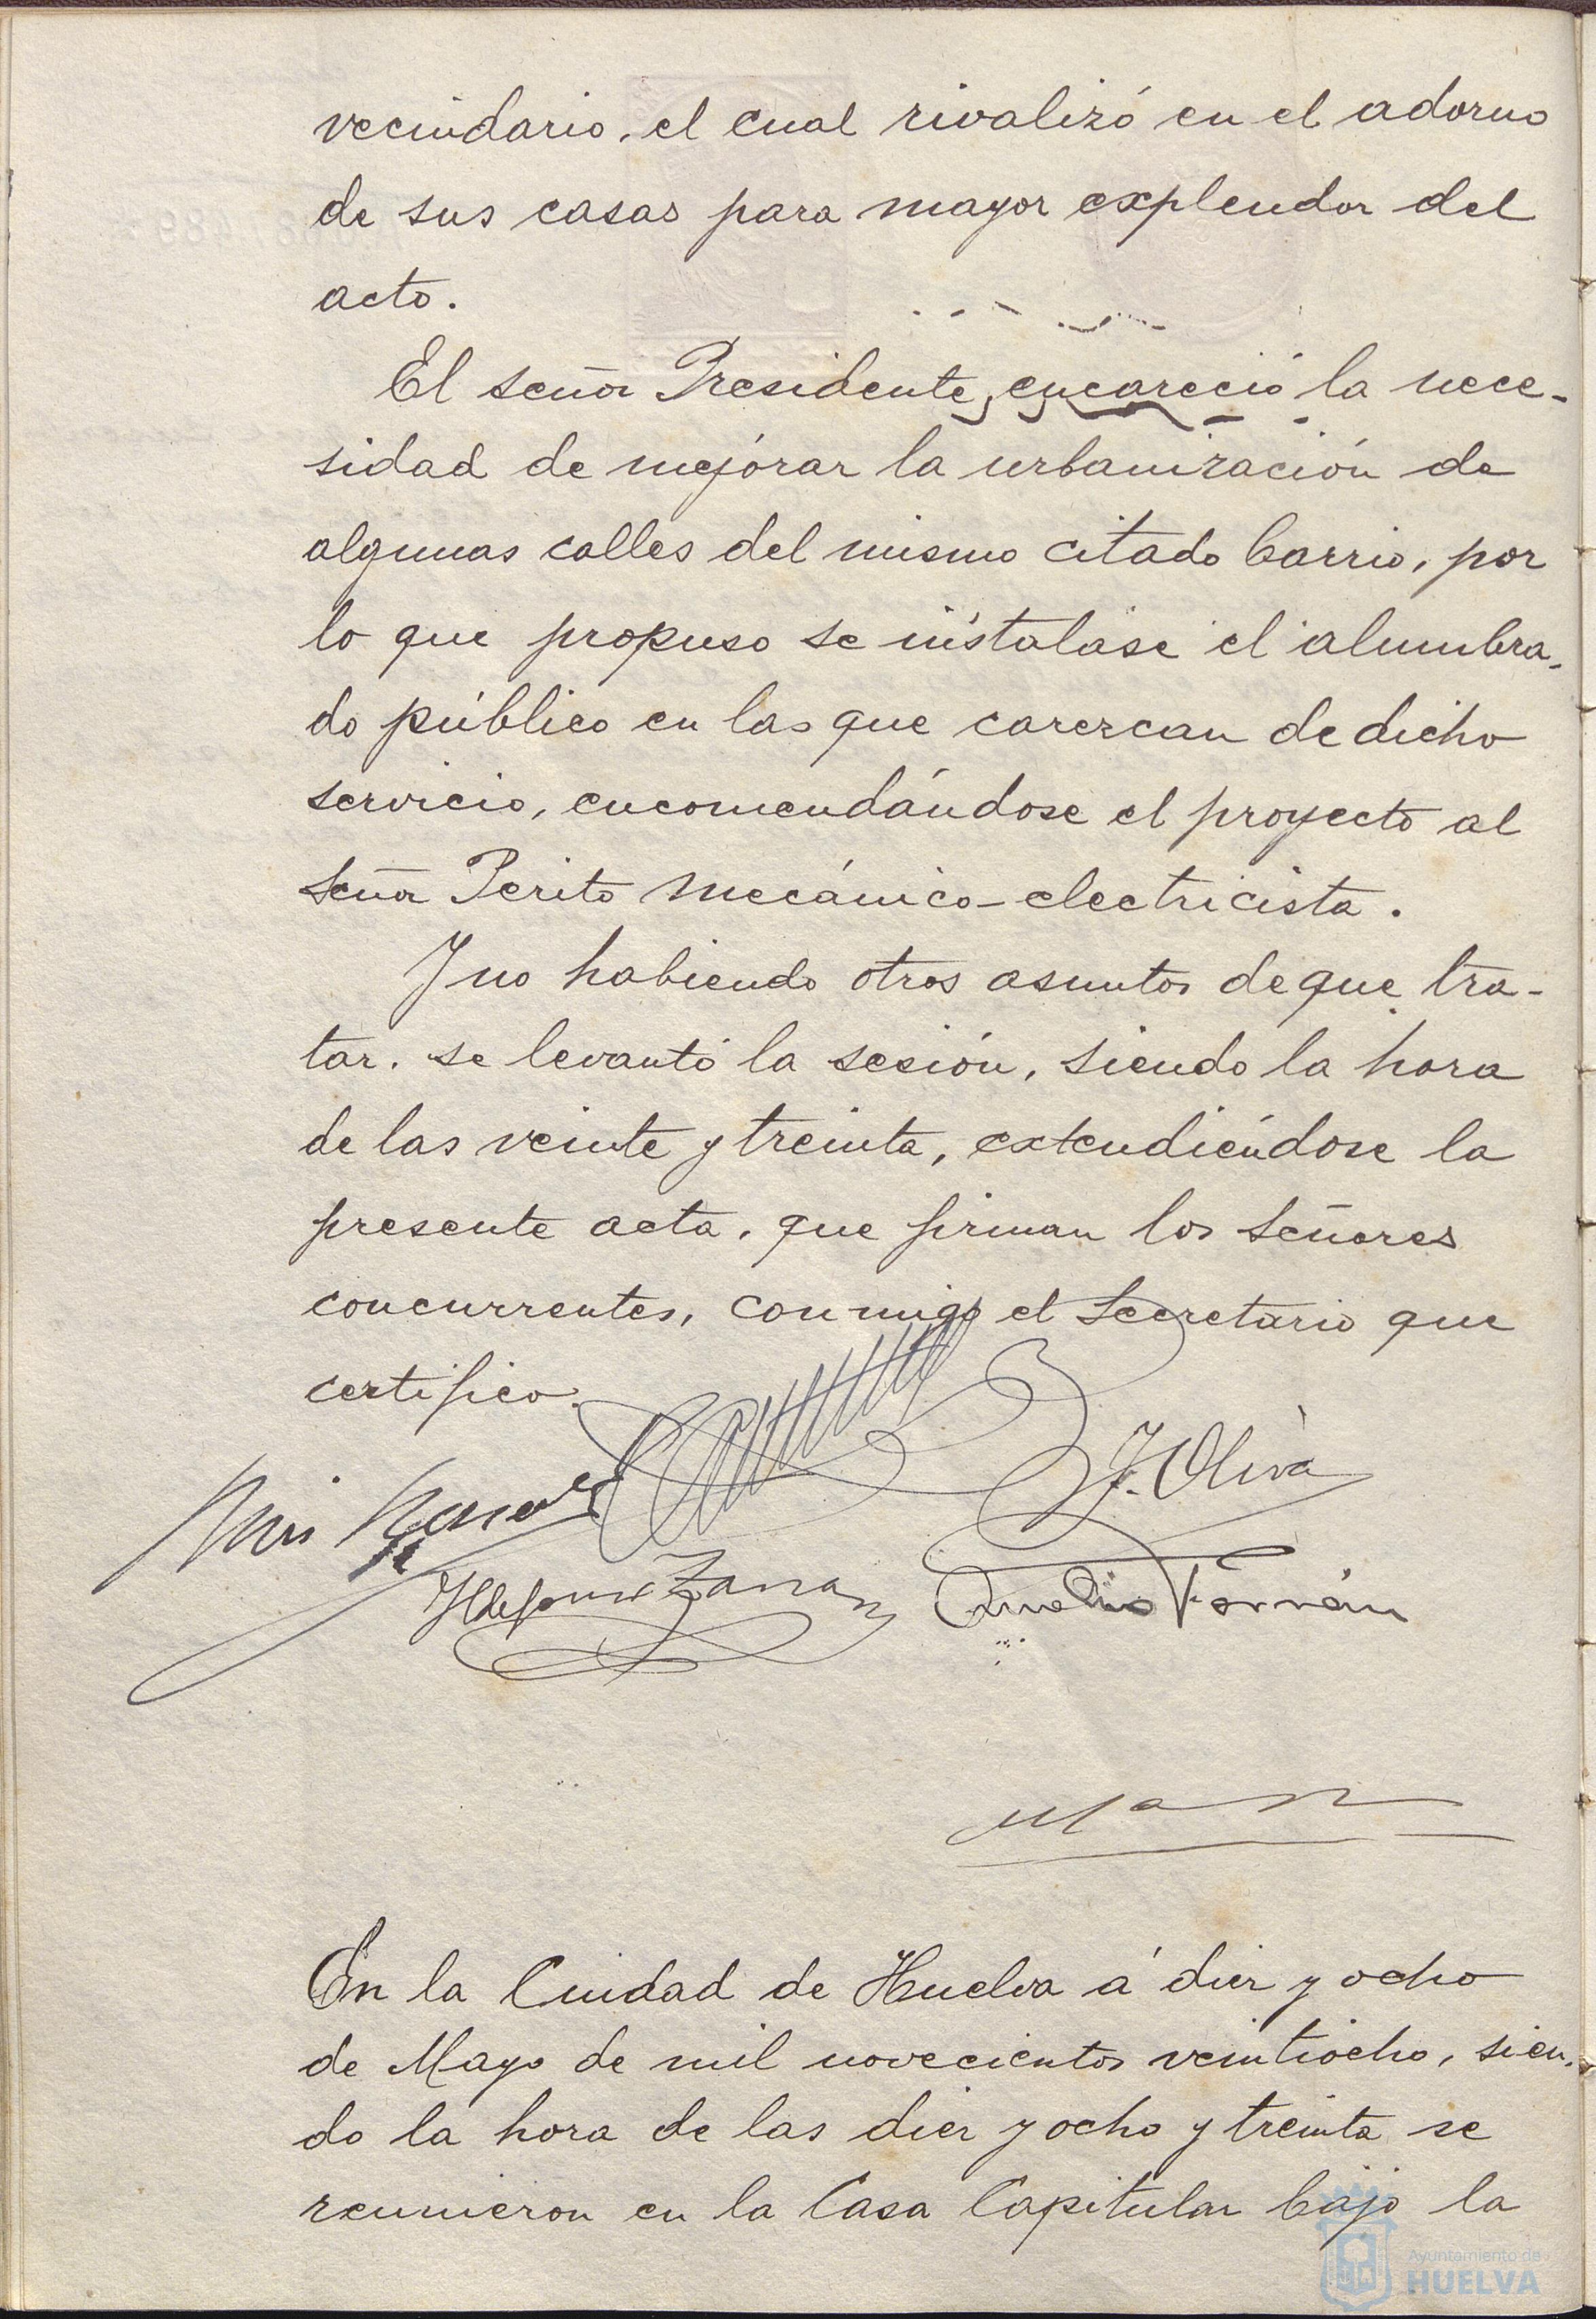 vecindario, el cual rivalizó en el adorno
de sus casas para mayor explendor del
acto.
El señor Presidente, encareció la nece-
sidad de mejorar la urbanización de
algunas calles del mismo citado barrio, por
lo que propuso se instalase el alumbra-
do público en las que carezcan de dicho
servicio, encomendándose el proyecto al
señor Perito mecánico-electricista.
Y no habiendo otros asuntos de que tra-
tar. se levantó la sesión, siendo la hora
de las veinte y treinta, extendiéndose la
presente acta, que firman los señores
concurrentes, conmigo el Secretario que
certifico.
J. Oliva
Ildefonso
En la Ciudad de Huelva á diez y ocho
de Mayo de mil novecientos veintiocho, sien-
do la hora de las diez y ocho y treinta se
reunieron en la Casa Capitular bajo la
Ayuntamiento de
HUELVA